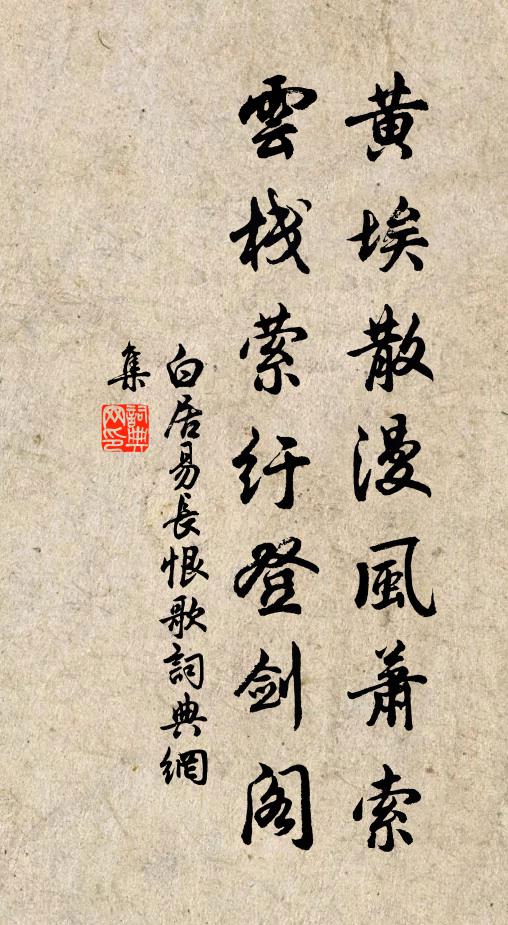 黄埃散漫風蕭索
雲棧縈紆登劍阁
白居易長恨歌詞典網
集
詞典网印